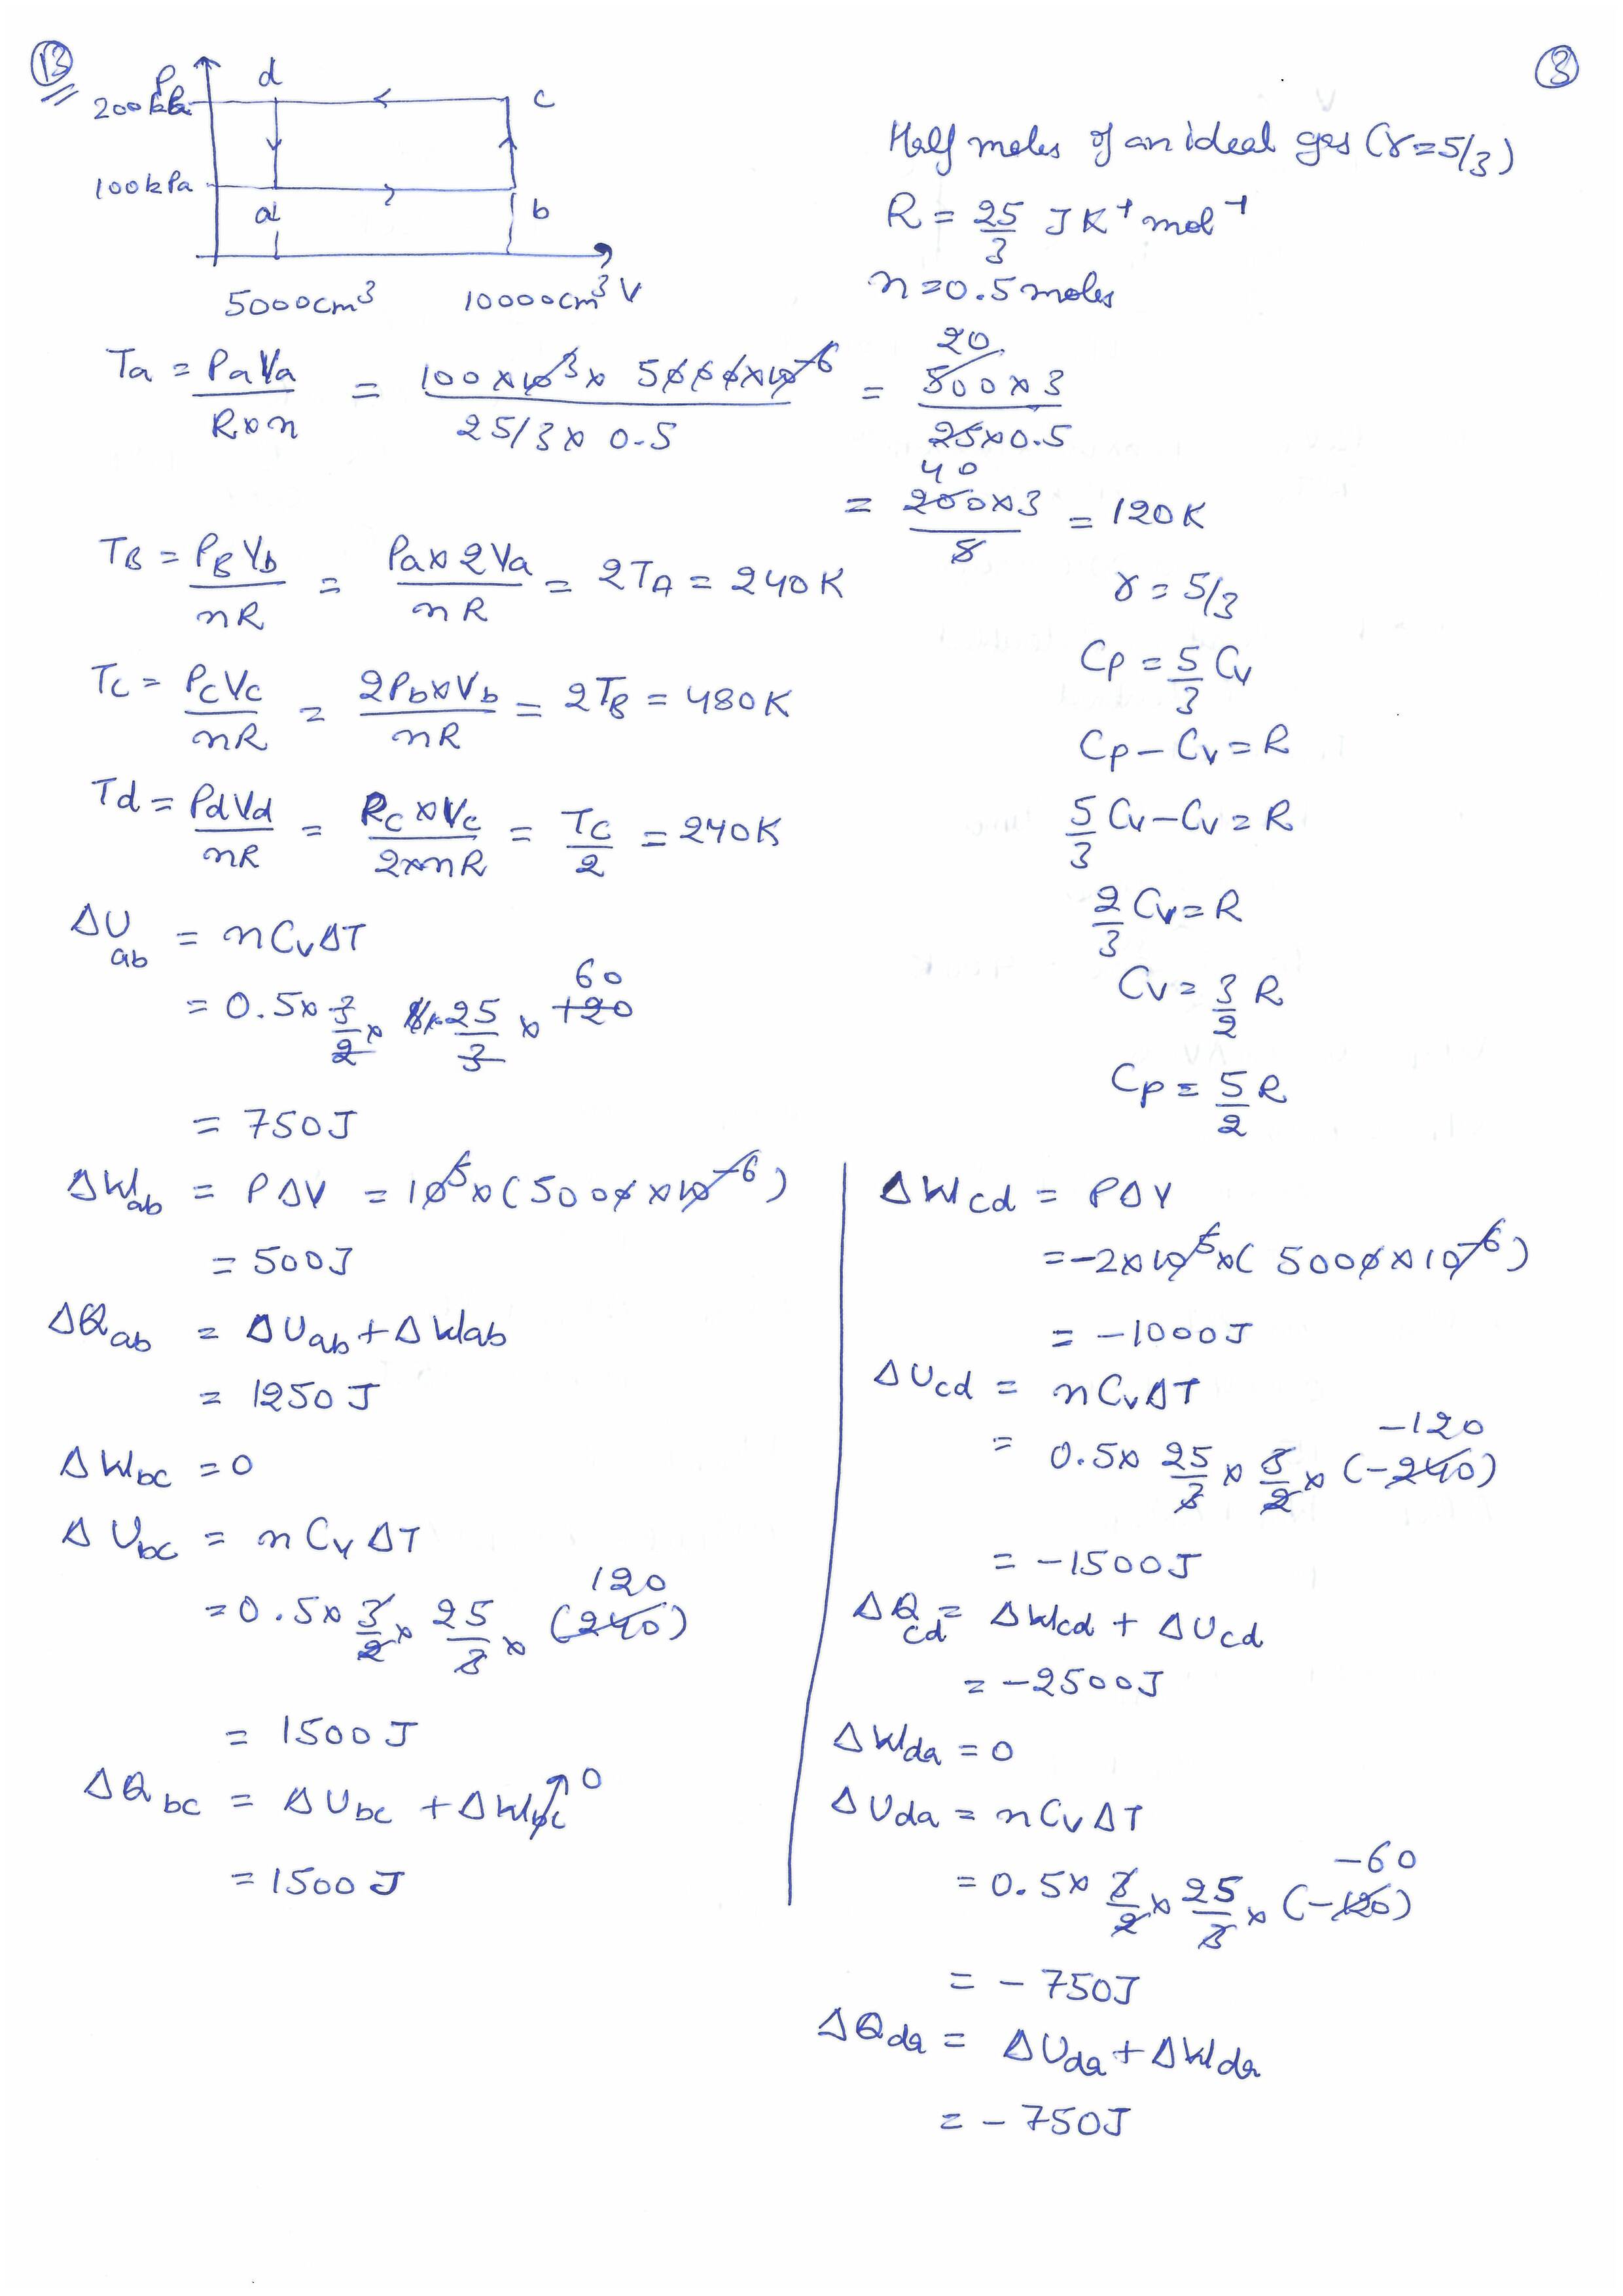 13
3
P
d
200kPa
c
100kPa
a
b
5000cm³ 10000cm³ V
Half moles of an ideal gas (γ=5/3)
R = 25/3 J K⁻¹ mol⁻¹
n=0.5 moles
Ta = PaVa / R×n = 100×10³ × 5000×10⁻⁶ / 25/3 × 0.5 = 20 500×3 / 25×0.5
= 40 200×3 / 5 = 120K
TB = PB Vb / nR = Pa×2Va / nR = 2TA = 240K
TC = PcVc / nR = 2Pb×Vb / nR = 2TB = 480K
Td = PdVd / nR = Pc×Vc / 2×nR = Tc/2 = 240K
γ = 5/3
Cp = 5/3 Cv
Cp – Cv = R
5/3 Cv – Cv = R
2/3 Cv = R
Cv = 3/2 R
Cp = 5/2 R
ΔUab = nCvΔT
= 0.5× 3/2 × 25/3 × 120 60
= 750J
ΔWab = PΔV = 10⁵×(5000×10⁻⁶)
= 500J
ΔQab = ΔUab + ΔWab
= 1250J
ΔWbc = 0
ΔUbc = nCvΔT
= 0.5× 3/2 × 25/3 × (240) 120
= 1500J
ΔQbc = ΔUbc + ΔWbc 0
= 1500J
ΔWcd = PΔV
= -2×10⁵×(5000×10⁻⁶)
= -1000J
ΔUcd = nCvΔT
= 0.5× 25/3 × 3/2 × (-240) -120
= -1500J
ΔQcd = ΔWcd + ΔUcd
= -2500J
ΔWda = 0
ΔUda = nCvΔT
= 0.5× 3/2 × 25/3 × (-120) -60
= - 750J
ΔQda = ΔUda + ΔWda
= - 750J